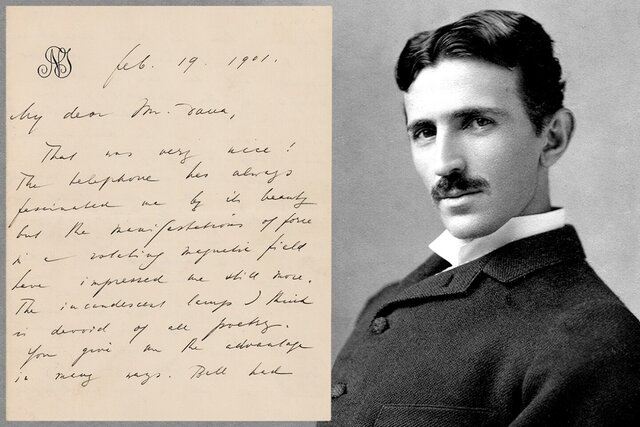 NT
Feb. 19. 1901.
My dear Mr. Dana,
That was very nice!
The telephone has always
fascinated me by its beauty
but the manifestations of force
in a rotating magnetic field
have impressed me still more.
The incandescent lamp I think
is devoid of all poetry.
You give me the advantage
in many ways. Bell had